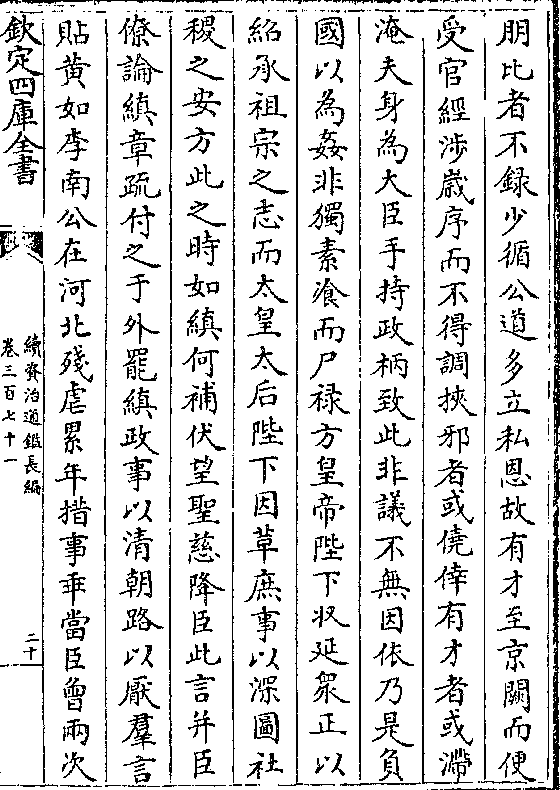 朋比者不録少循公道多立私恩故有才至京闕而便
受官經渉歳序而不得調挾邪者或僥倖有才者或滯
淹夫身為大臣手持政柄致此非議不無因依乃是負
國以為姦非獨素飡而尸禄方皇帝陛下收延衆正以
紹承祖宗之志而太皇太后陛下因革庶事以深圖社
稷之安方此之時如縝何補伏望聖慈降臣此言并臣
僚論縝章疏付之于外罷縝政事以清朝路以厭羣言
貼黄如李南公在河北殘虐累年措事乖當臣曾兩次
欽定四庫全書
續資治通鑑長編
卷三百七十一
二十